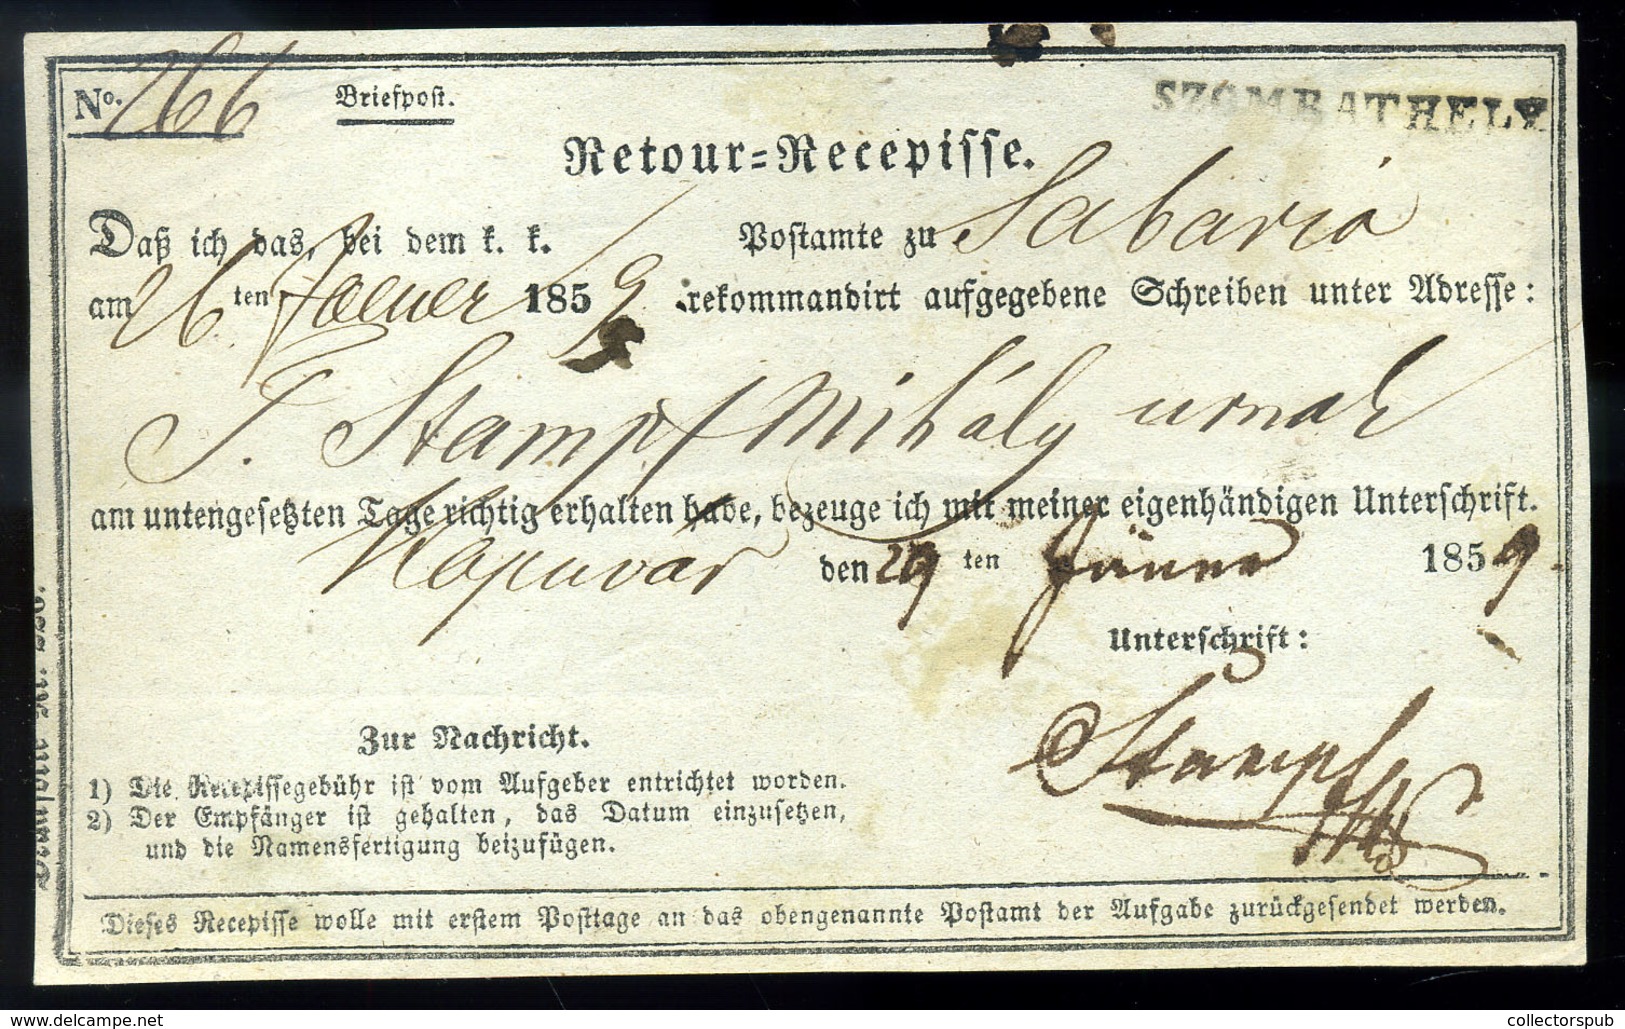 No. 266 Briefpost. SZOMBATHELY
Retour=Recepisse.
Daß ich das, bei dem k. k. Postamte zu Sabaria
am 26 ten Jaener 1859 rekommandirt aufgegebene Schreiben unter Adresse:
T. Stampf Mihály urnak
am untengesetzten Tage richtig erhalten habe, bezeuge ich mit meiner eigenhändigen Unterschrift.
Kapuvár den 29 ten Jäner 1859.
Unterschrift:
Stampf
Zur Nachricht.
1) Die Recepissegebühr ist vom Aufgeber entrichtet worden.
2) Der Empfänger ist gehalten, das Datum einzusetzen,
und die Namensfertigung beizufügen.
Dieses Recepisse wolle mit erstem Posttage an das obengenannte Postamt der Aufgabe zurückgesendet werden.
collectorspub
collectorspub.com